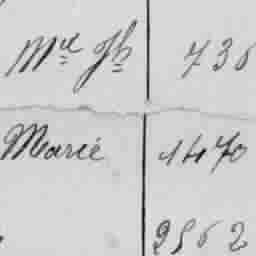 Md Jh 736
Marie 1470
2562